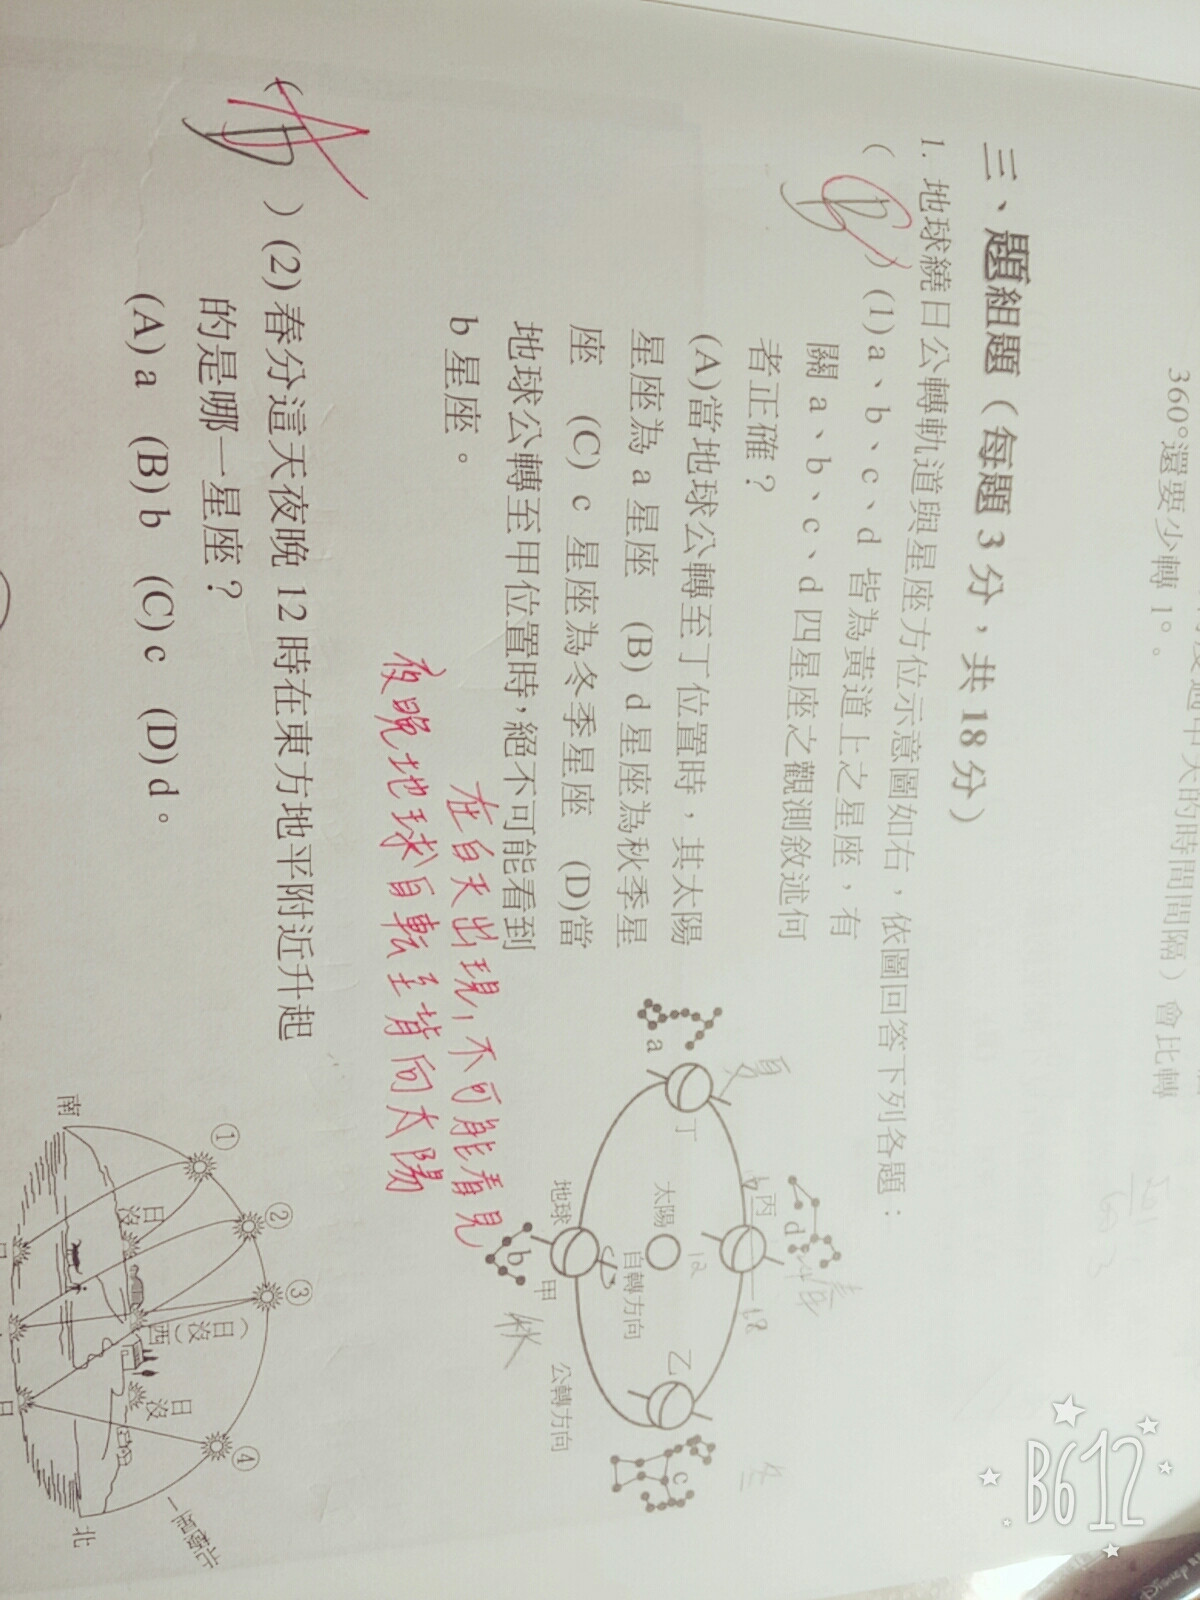 360°還要少轉1°。
三、題組題（每題3分，共18分）
1. 地球繞日公轉軌道與星座方位示意圖如右，依圖回答下列各題：
( B ) (1) a、b、c、d 皆為黃道上之星座，有
關 a、b、c、d 四星座之觀測敘述何
者正確？
(A)當地球公轉至丁位置時，其太陽
星座為 a 星座 (B) d 星座為秋季星
座 (C) c 星座為冬季星座 (D)當
地球公轉至甲位置時，絕不可能看到
b 星座。
在白天出現，不可能看見
夜晚地球自転至背向太陽
a
丁
夏
丙
d
春
太陽
自轉方向
地球
甲
b
秋
乙
c
冬
公轉方向
12
18
( A D ) (2) 春分這天夜晚 12 時在東方地平附近升起
的是哪一星座？
(A) a (B) b (C) c (D) d。
①
②
③
④
南
日沒
(西)
日沒
日沒
北
北極星
B612